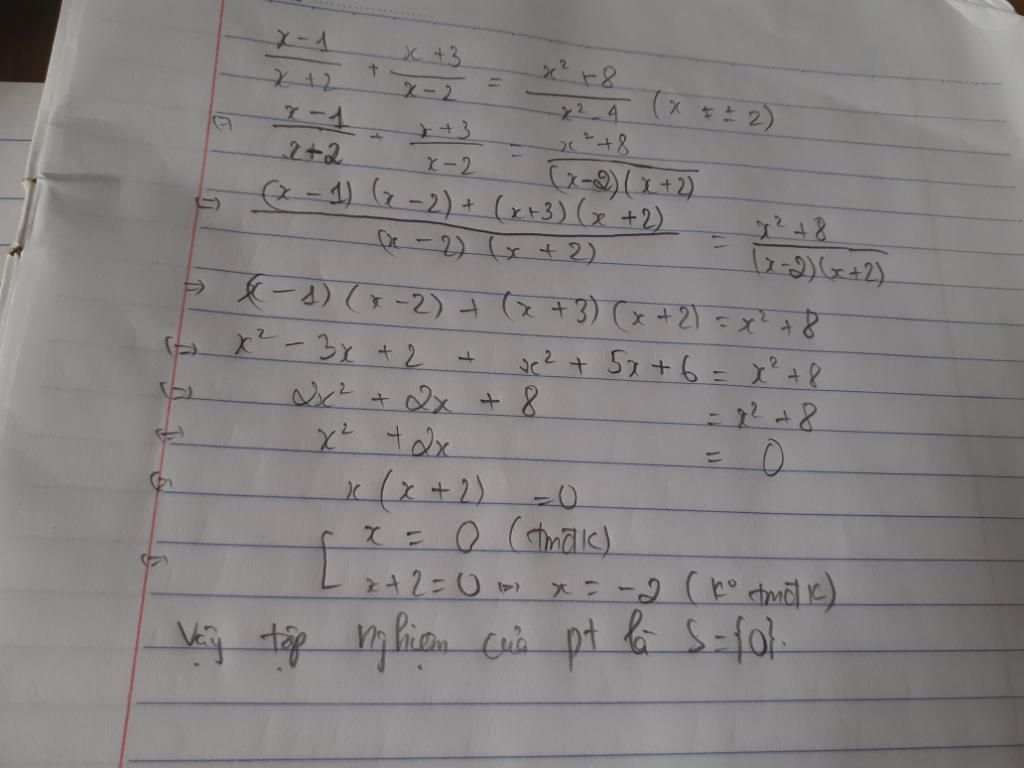 x-1/x+2 + x+3/x-2 = x²+8/x²-4 (x ≠ ± 2)
⇔ x-1/x+2 + x+3/x-2 = x²+8/(x-2)(x+2)
⇔ (x-1)(x-2)+(x+3)(x+2)/(x-2)(x+2) = x²+8/(x-2)(x+2)
⇒ (x-1)(x-2)+(x+3)(x+2) = x²+8
⇔ x²-3x+2 + x²+5x+6 = x²+8
⇔ 2x²+2x+8 = x²+8
⇔ x²+2x = 0
⇔ x(x+2) = 0
⇔ [ x = 0 (tmđk)
x+2=0 ⇔ x = -2 (k° tmđk)
Vậy tập nghiệm của pt là S={0}.